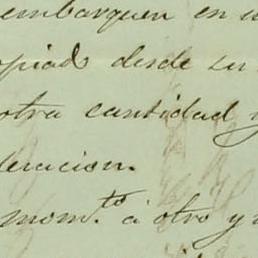 embarquen en u
opiado desde su
otra cantidad y
deracion.
mom.to á otro y n